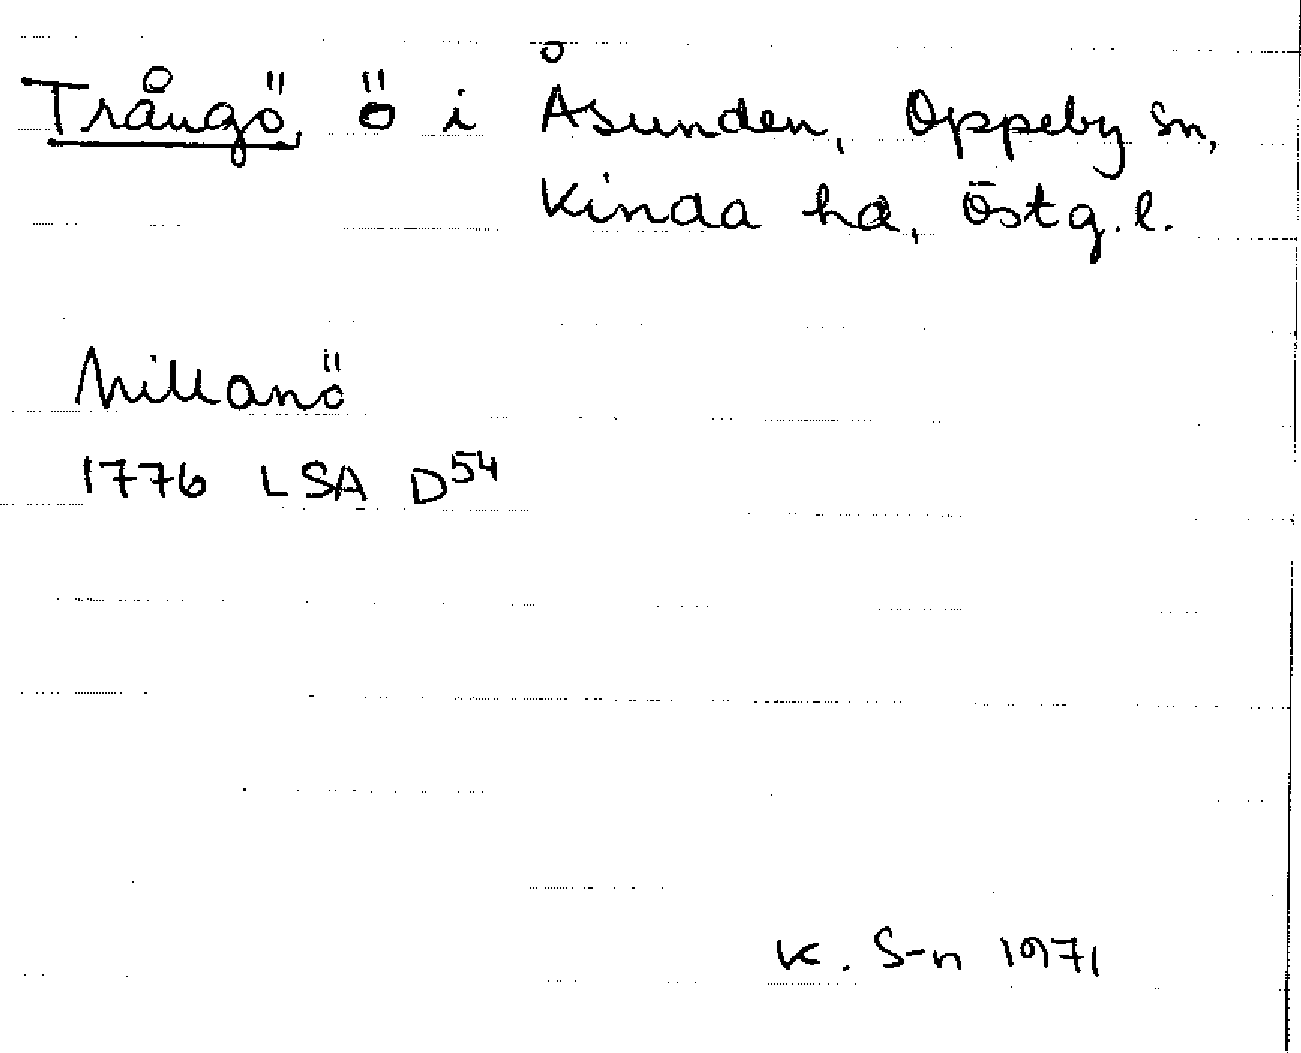 Trångö, ö i Åsunden, Oppeby sn,
Kinda hd, Östg. l.
1776 LSA D54
K. S-n 1971